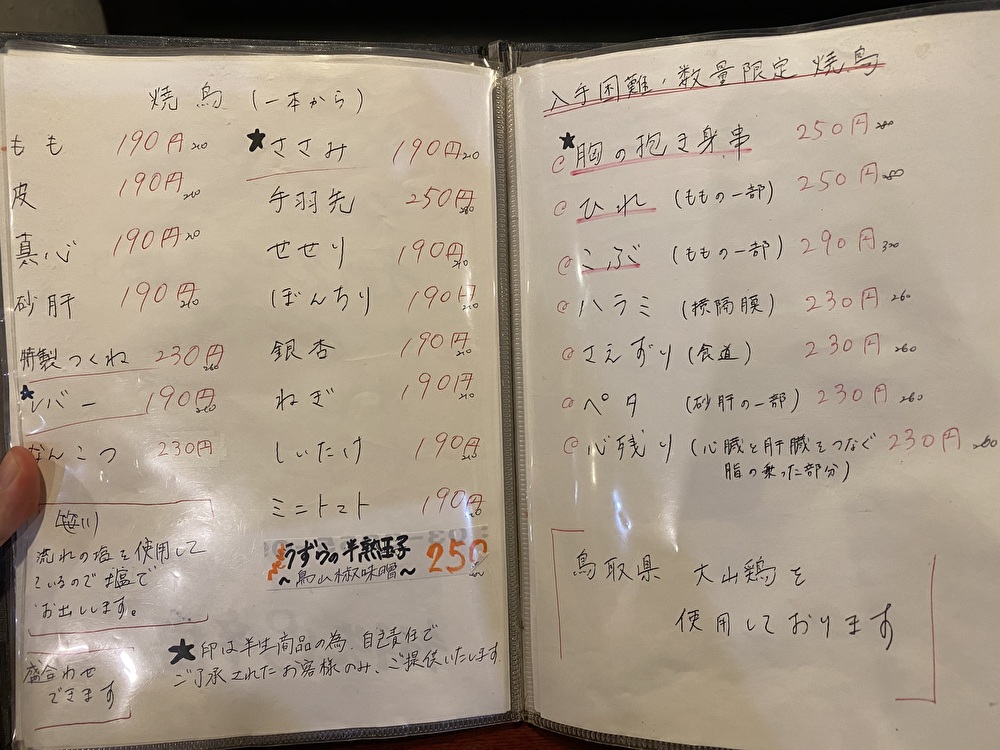 焼鳥 (一本から)
もも 190円 210
皮 190円 210
真心 190円 210
砂肝 190円 210
特製つくね 230円 260
★レバー 190円 210
なんこつ 230円
(笹川)
流れの塩を使用して
いるので塩で
お出しします。
盛合わせ
できます
★ささみ 190円 210
手羽先 250円 280
せせり 190円 210
ぼんちり 190円 210
銀杏 190円 210
ねぎ 190円 210
しいたけ 190円 210
ミニトマト 190円
うずらの半熟玉子 250
〜鳥山椒味噌〜
★印は半生商品の為、自己責任で
ご了承されたお客様のみ、ご提供いたします
入手困難、数量限定 焼鳥
★胸の抱き身串 250円 280
ひれ (ももの一部) 250円 280
こぶ (ももの一部) 290円 320
ハラミ (横隔膜) 230円 260
さえずり (食道) 230円 260
ペタ (砂肝の一部) 230円 260
心残り (心臓と肝臓をつなぐ 230円 260
脂の乗った部分)
鳥取県 大山鶏を
使用しております